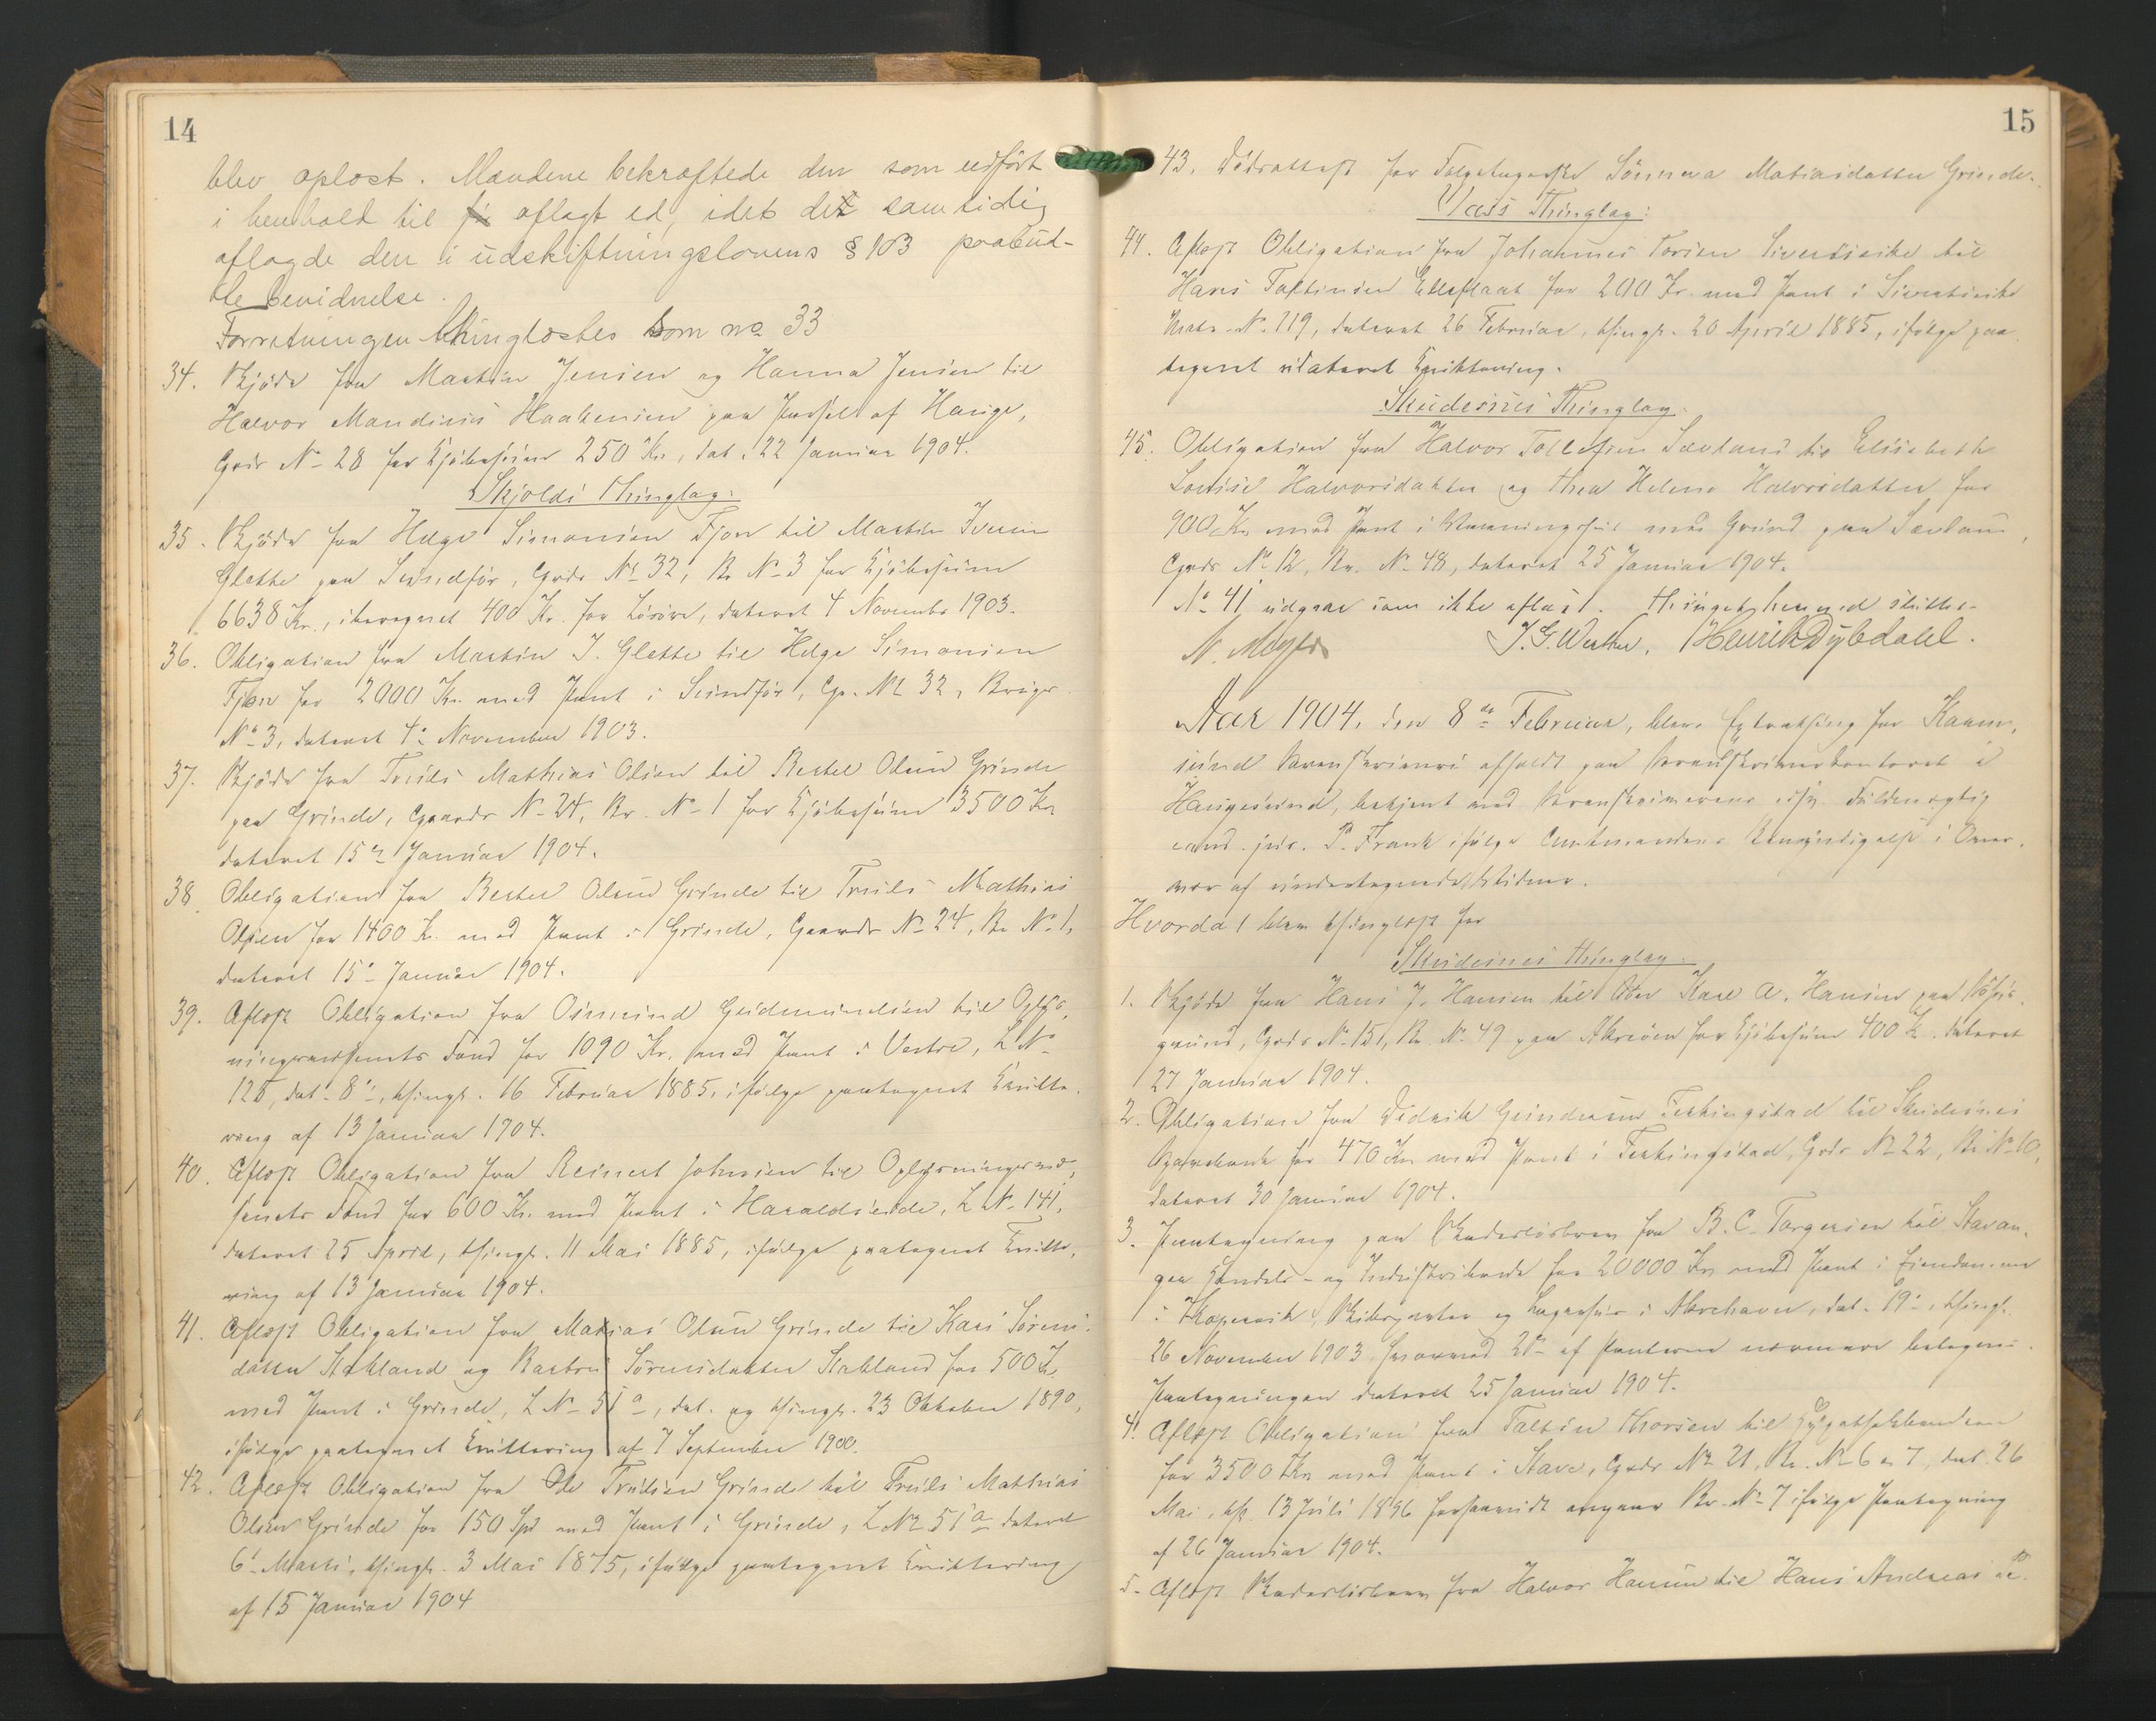 14
blev oplæst. Mændene bekræftede den som udført
i henhold til aflagt ed, idet det samtidig
aflagde den i udskiftningslovens § 103 paabud-
te bevidnelse.
Forretningen thinglæstes som no 33
34. Skjøde fra Martin Jensen og Hanna Jensen til
Halvor Mandius Haakensen paa Parsel af Hauge,
Grds No 28 for Kjøbesum 250 Kr, dat. 22 Januar 1904.
Skjolds Thinglag:
35. Skjøde fra Helge Simonsen Fjon til Martin Iversen
Glette paa Sundfør, Grds No 32, Br No 3 for Kjøbesum
6638 Kr., iberegnet 400 Kr. for Løsøre, dateret 4 November 1903.
36. Obligation fra Martin I. Glette til Helge Simonsen
Fjon for 2000 Kr. med Pant i Sundfør, Gr. No 32, Brugs
No 3, dateret 4. November 1903.
37. Skjøde fra Truls Mathias Olsen til Bertel Olsen Grinde
paa Grinde, Gaards No 24, Br. No 1 for Kjøbesum 3500 Kr
dateret 15de Januar 1904.
38. Obligation fra Bertel Olsen Grinde til Truls Mathias
Olsen for 1400 Kr. med Pant i Grinde, Gaards No 24, Br No 1,
dateret 15. Januar 1904.
39. Aflæst Obligation fra Osmund Gudmundsen til Oplys-
ningsvæsenets Fond for 1090 Kr. med Pant i Vestre, L No
125, dat. 8., thingl. 16 Februar 1885, ifølge paategnet Kvitte-
ring af 13 Januar 1904.
40. Aflæst Obligation fra Reinert Johnsen til Oplysningsvæ-
senets Fond for 600 Kr. med Pant i Haraldseide, L No 141,
dateret 25 April, thingl. 11 Mai 1885, ifølge paategnet Kvitte-
ring af 13 Januar 1904.
41. Aflæst Obligation fra Matias Olsen Grinde til Kari Sørens-
datter Stakland og Barbro Sørensdatter Stakland for 500 Kr.
med Pant i Grinde, L No 51 a, dat. og thingl. 23 Oktober 1890,
ifølge paategnet Kvittering af 7 September 1900.
42. Aflæst Obligation fra Ole Trulsen Grinde til Truls Mathias
Olsen Grinde for 150 Spd med Pant i Grinde, L No 51 a dateret
6. Marts, thingl. 3 Mai 1875, ifølge paategnet Kvittering
af 15 Januar 1904
15
43. Dødsattest for Sønneva Matiasdatter Grinde.
Vats Thinglag:
44. Aflæst Obligation fra Johannes Torsen Sivertsvike til
Hans Tostinsen for 200 Kr. med Pant i Sivertsvike
Matr. No 119, dateret 26 Februar, thingl. 20 April 1885, ifølge paa-
tegnet udateret Kvittering.
Skudesnes Thinglag.
45. Obligation fra Halvor Tollefsen Sævland til Elisabeth
Lovise Halvorsdatter og Thea Helene Halvorsdatter for
900 Kr med Pant i Vaaningshus med Grund paa Sævland,
Grds No 12, Br. No 48, dateret 25 Januar 1904.
No 41 udgaar som ikke aflæst. Thinget hermed sluttet.
N. Meyer J. G. Henrik Dybdahl.
Aar 1904, den 8de Februar, blev Extrathing for Karm-
sund Sorenskriveri afholdt paa Sorenskriverkontoret i
Haugesund, betjent med Sorenskriverens edsv. Fuldmægtig
cand. jur. P. Frank ifølge Amtmandens Bemyndigelse i Over-
vær af undertegnede Vidner.
Hvorda blev thinglæst for
Skudesnes Thinglag.
1. Skjøde fra Hans J. Hansen til Karl A. Hansen paa
grund, Grds No 15, Br. No 49 paa Akreøen for Kjøbesum 400 Kr. dateret
27 Januar 1904.
2. Obligation fra Didrik Gundersen Ferkingstad til Skudesnes
Sparebank for 470 Kr med Pant i Ferkingstad, Grds No 22, Br No 10,
dateret 30 Januar 1904.
3. Paategning paa Skadesløsbrev fra B. C. Torgersen til Stavan-
ger Handels- og Industribank for 20000 Kr med Pant i Eiendomme
i Kopervik, og i Akrehavn, dat. 19., thingl.
26 November 1903 hvorved 2de af Panterne nærmere betegnes.
Paategningen dateret 25 Januar 1904.
4. Aflæst Obligation fra Taltin Thorsen til Hypothekbanken
for 3500 Kr med Pant i Stave, Grds No 21, Br. No 6 & 7, dat. 26
Mai, thl. 13 Juli 1896 forsaavidt angaar Br. No 7 ifølge Paategning
af 26 Januar 1904.
5. Aflæst Skadesløsbrev fra Halvor Hansen til Hans Andreas &